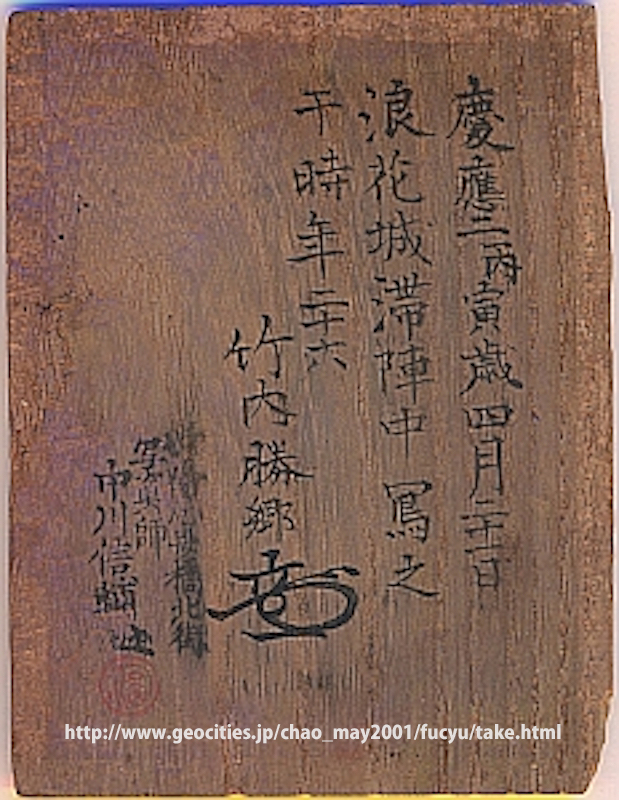 慶應二丙寅歳四月二十一日
浪花城滞陣中寫之
干時年二十六
竹内勝郷
橋北
寫真師
中川信輔
http://www.geocities.jp/chao_may2001/fucyu/take.html